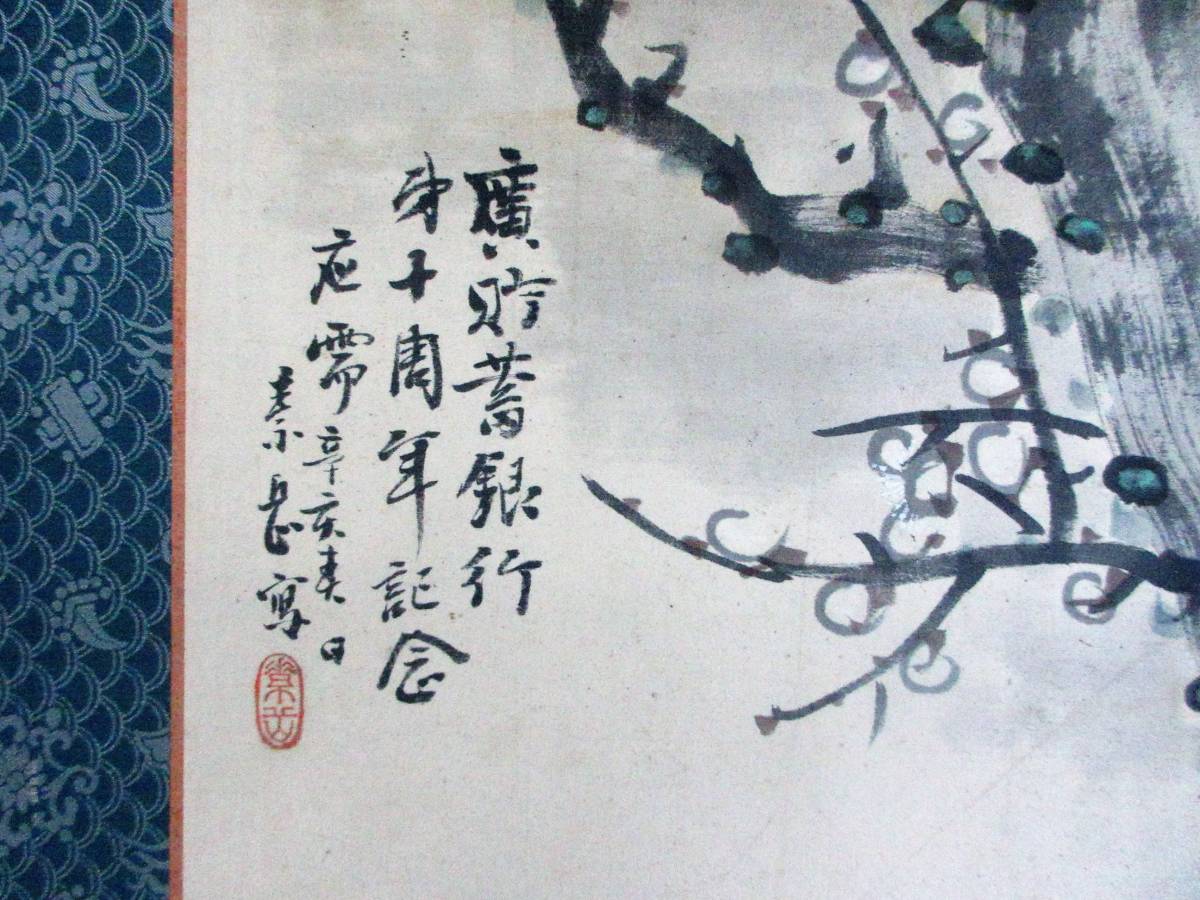 廣貯蓄銀行
第十周年記念
応需辛亥春日
素岳寫
素岳